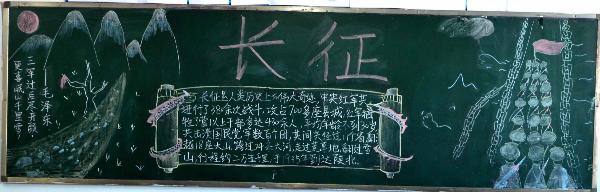 长征
更喜岷山千里雪
三军过后尽开颜
——毛泽东
长征是人类历史上的伟大奇迹,中央红军共
进行了380余次战斗,攻占700多座县城,红军牺
牲了营以上干部多达430余人,平均年龄不到30岁,
共击溃国民党军数百个团,其间共经过11个省,翻
越18座大山,跨过24条大河,走过荒草地,翻过雪
山,行程约二万五千里,于1935年到达陕北。